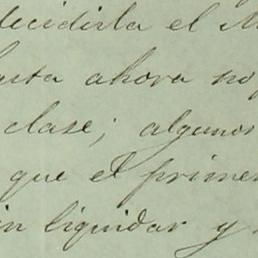 decidirla el M
hasta ahora no
clase; algunos
que el primer
in liquidar y